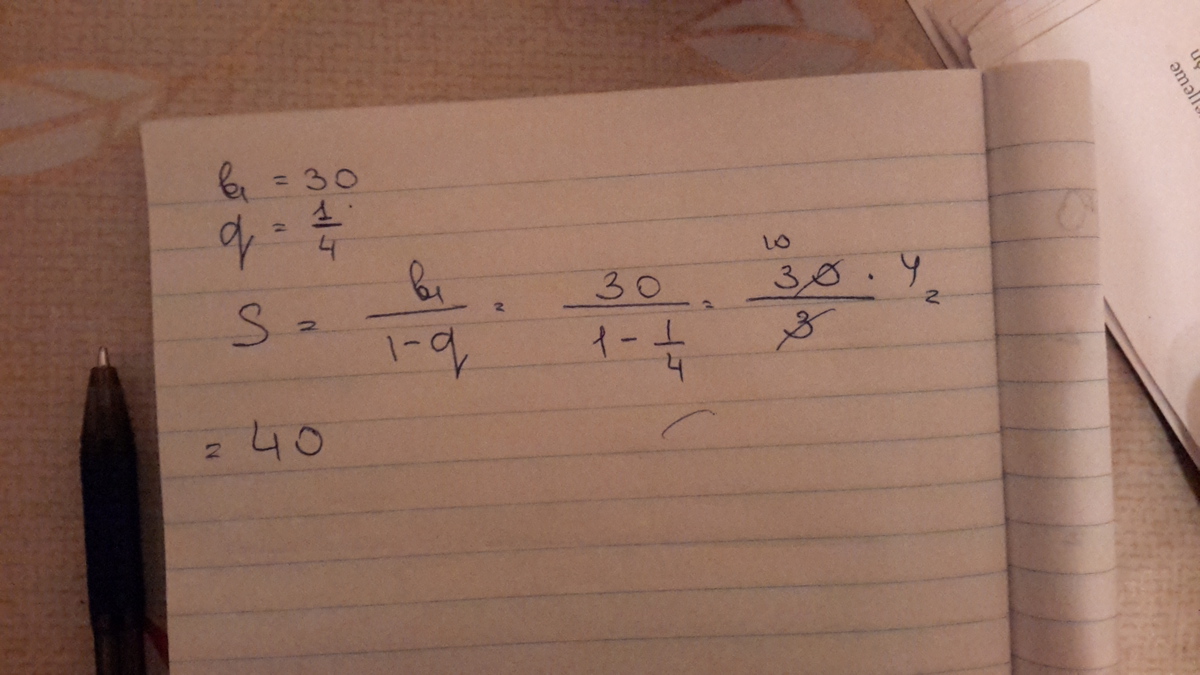 b₁ = 30
q = 1/4
S = b₁/(1-q) = 30/(1 - 1/4) = 10 30 · 4/3 =
= 40